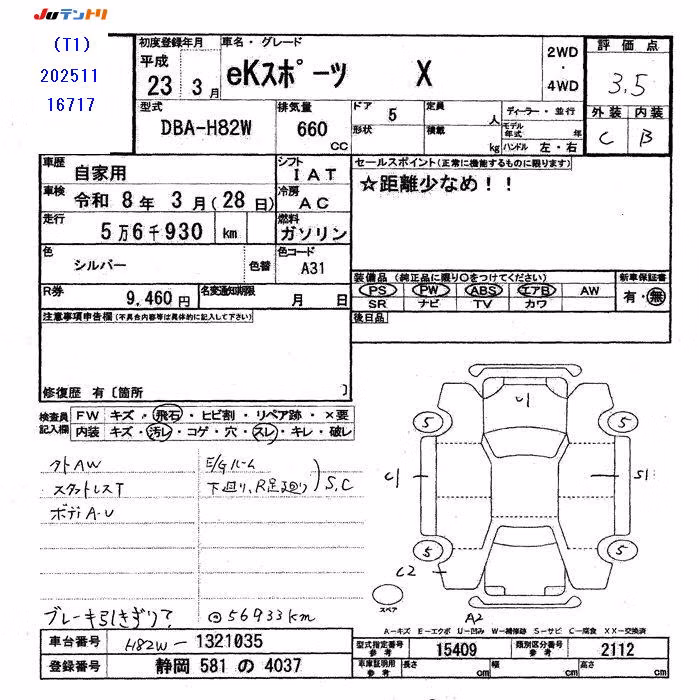 JUテントリ
(T1)
202511
16717
初度登録年月
平成
23 3月
車名・グレード
eKスポーツ X
2WD
・
4WD
評価点
3.5
外装 内装
C B
型式
DBA-H82W
排気量
660
CC
ドア 5
形状
定員 人
積載 kg
ディーラー・並行
モデル年式 年
ハンドル 左・右
車歴 自家用
シフト IAT
車検 令和 8年 3月(28日)
冷房 AC
走行 5万6千930 km
燃料 ガソリン
色 シルバー 色替
色コード A31
R券 9,460円
名変通知期限 月 日
セールスポイント(正常に機能するものに限ります)
☆距離少なめ!!
装備品 (純正品に限り○をつけてください)
PS PW ABS エアB AW
SR ナビ TV カワ
新車保証書
有・無
後日品
注意事項申告欄(不具合内容等は具体的に記入して下さい)
修復歴 有〔箇所 〕
検査員
記入欄
FW キズ・飛石・ヒビ割・リペア跡・×要
内装 キズ・汚レ・コゲ・穴・スレ・キレ・破レ
クトAW
スタットレスT
ボディA・U
E/Gルーム
下廻り、R足廻り
S,C
ブレーキ引きずり?
56933km
U1
5
5
C1
S1
5
5
C2
A2
スペア
A-キズ E-エクボ U-凹み W-補修跡 S-サビ C-腐食 XX-交換済
車台番号 H82W-1321035
登録番号 静岡 581 の 4037
型式指定番号
参考
15409
類別区分番号
参考
2112
車庫証明用
参考
長さ cm
幅 cm
高さ cm